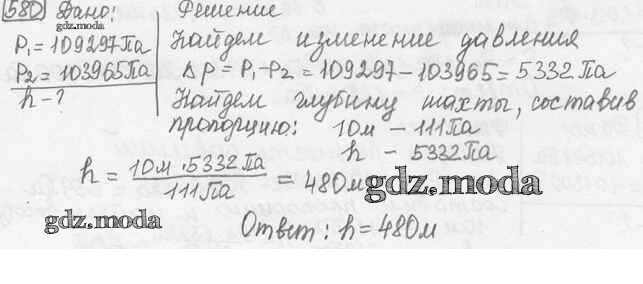 580 Дано: Решение
gdz.moda
P₁ = 109297 Па Найдем изменение давления
P₂ = 103965 Па Δp = P₁ - P₂ = 109297 - 103965 = 5332 Па
h - ? Найдем глубину шахты, составив
пропорцию: 10м - 111Па
h - 5332 Па
h = 10м · 5332 Па / 111 Па = 480м
gdz.moda
gdz.moda
Ответ: h = 480м